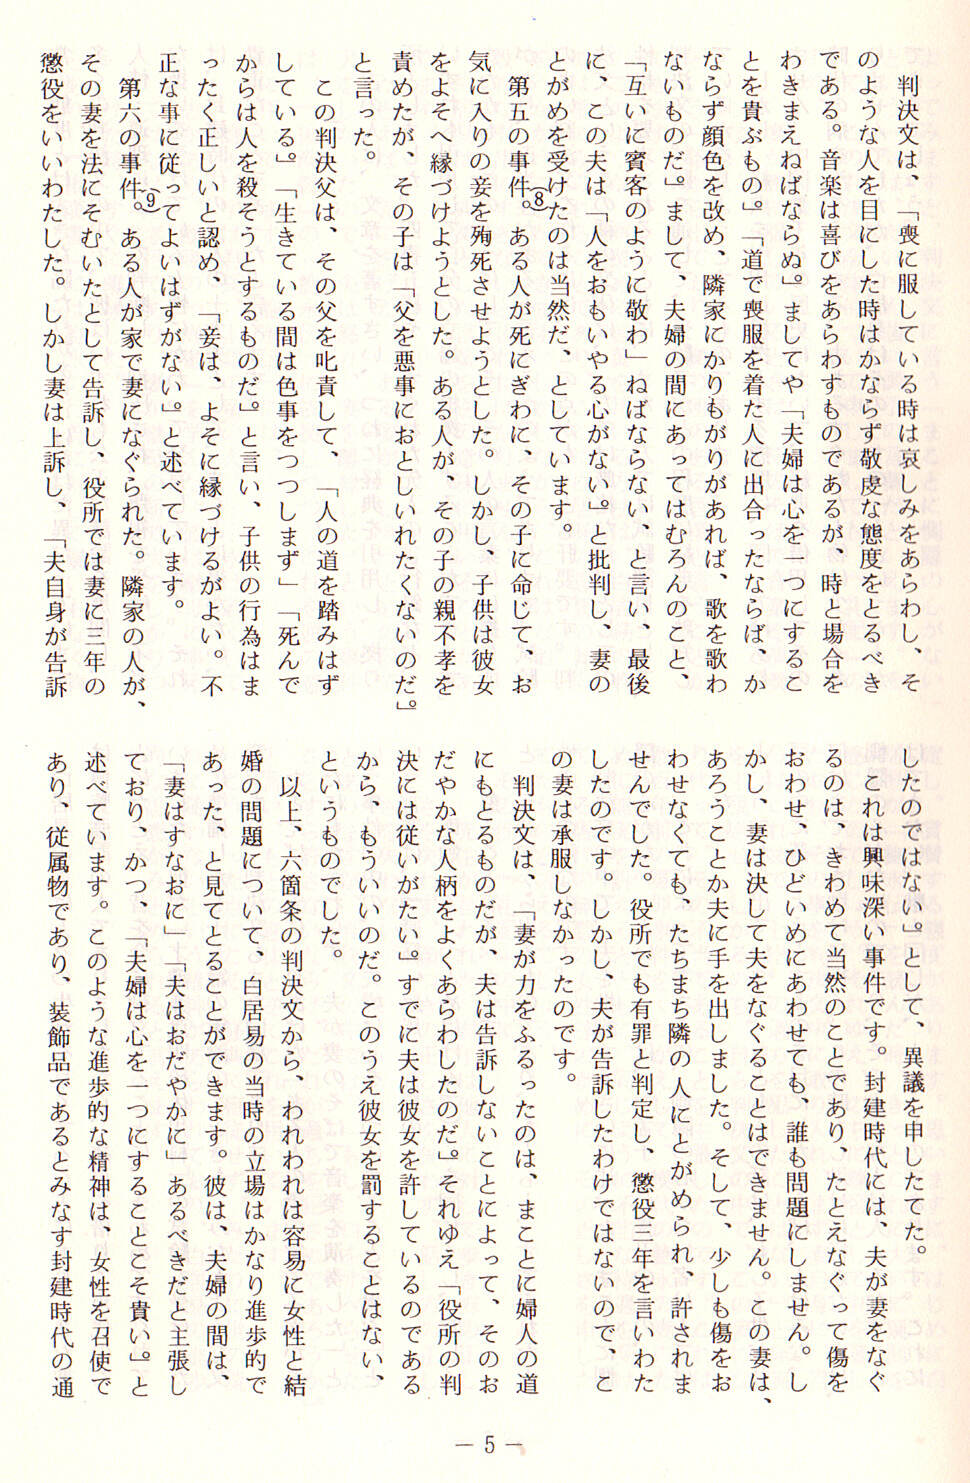 判決文は、「喪に服している時は哀しみをあらわし、そ
のような人を目にした時はかならず敬虔な態度をとるべき
である。音楽は喜びをあらわすものであるが、時と場合を
わきまえねばならぬ。ましてや「夫婦は心を一つにするこ
とを貴ぶもの。」「道で喪服を着た人に出合ったならば、か
ならず顔色を改め、隣家にかりもがりがあれば、歌を歌わ
ないものだ。」まして、夫婦の間にあってはむろんのこと、
「互いに賓客のように敬わ」ねばならない、と言い、最後
に、この夫は「人をおもいやる心がない。」と批判し、妻の
とがめを受けたのは当然だ、としています。
第五の事件。(8)ある人が死にぎわに、その子に命じて、お
気に入りの妾を殉死させようとした。しかし、子供は彼女
をよそへ縁づけようとした。ある人が、その子の親不孝を
責めたが、その子は「父を悪事におとしいれたくないのだ。」
と言った。
この判決父は、その父を叱責して、「人の道を踏みはず
している。」「生きている間は色事をつつしまず」「死んで
からは人を殺そうとするものだ。」と言い、子供の行為はま
ったく正しいと認め、「妾は、よそに縁づけるがよい。不
正な事に従ってよいはずがない。」と述べています。
第六の事件。(9)ある人が家で妻になぐられた。隣家の人が、
その妻を法にそむいたとして告訴し、役所では妻に三年の
懲役をいいわたした。しかし妻は上訴し、「夫自身が告訴
したのではない。」として、異議を申したてた。
これは興味深い事件です。封建時代には、夫が妻をなぐ
るのは、きわめて当然のことであり、たとえなぐって傷を
おわせ、ひどいめにあわせても、誰も問題にしません。し
かし、妻は決して夫をなぐることはできません。この妻は、
あろうことか夫に手を出しました。そして、少しも傷をお
わせなくても、たちまち隣の人にとがめられ、許されま
せんでした。役所でも有罪と判定し、懲役三年を言いわた
したのです。しかし、夫が告訴したわけではないので、こ
の妻は承服しなかったのです。
判決文は、「妻が力をふるったのは、まことに婦人の道
にもとるものだが、夫は告訴しないことによって、そのお
だやかな人柄をよくあらわしたのだ。」それゆえ「役所の判
決には従いがたい。」すでに夫は彼女を許しているのである
から、もういいのだ。このうえ彼女を罰することはない、
というものでした。
以上、六箇条の判決文から、われわれは容易に女性と結
婚の問題について、白居易の当時の立場はかなり進歩的で
あった、と見てとることができます。彼は、夫婦の間は、
「妻はすなおに」「夫はおだやかに」あるべきだと主張し
ており、かつ、「夫婦は心を一つにすることこそ貴い。」と
述べています。このような進歩的な精神は、女性を召使で
あり、従属物であり、装飾品であるとみなす封建時代の通
— 5 —